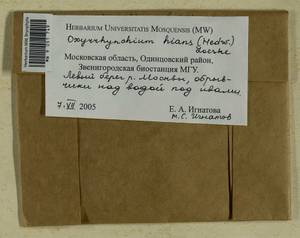 Herbarium Universitatis Mosquensis (MW)
Oxyrrhynchium hians (Hedw.)
Loeske
Московская область, Одинцовский район,
Звенигородская биостанция МГУ.
Левый берег р. Москвы, обрыв-
чики над водой под ивами.
7.VII 2005
Е. А. Игнатова
М.С. Игнатов